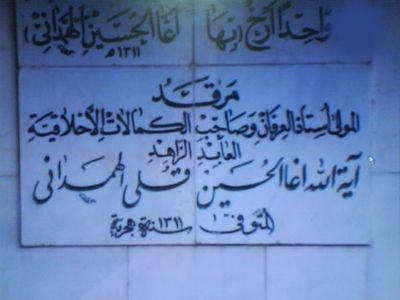 واحداً أرخ (بها آغا الحسين الهمداني)
١٣١١هـ
مرقد
المولى أستاذ العرفان وصاحب الكمالات الأخلاقية
العابد الزاهد
آية الله آغا الحسين قلي الهمداني
المتوفى سنة ١٣١١ هجرية